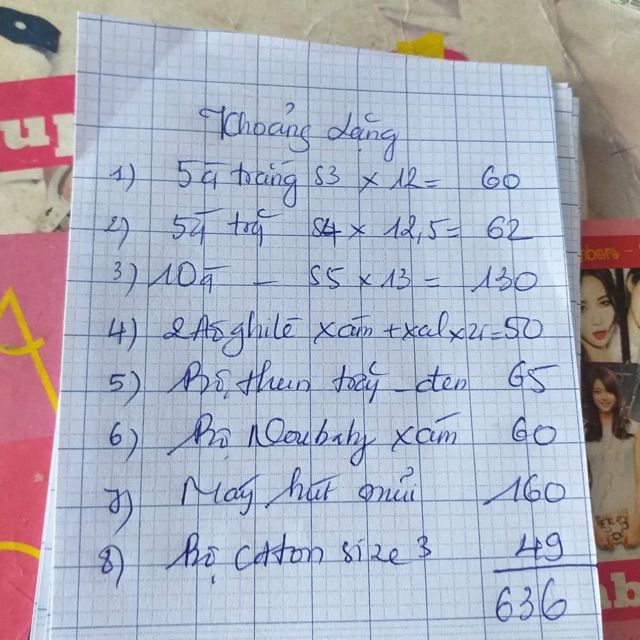 Khoảng dặng
1) 5q̄ trắng S3 x 12 = 60
2) 5q̄ trắ S4 x 12,5 = 62
3) 10q̄ — S5 x 13 = 130
4) 2 Áo ghilê xám + xal x 25 = 50
5) Bộ thun trắ - đen 65
6) Bộ Noubaby xám 60
7) Máy hút mũi 160
8) Bộ Cotton size 3 49
636